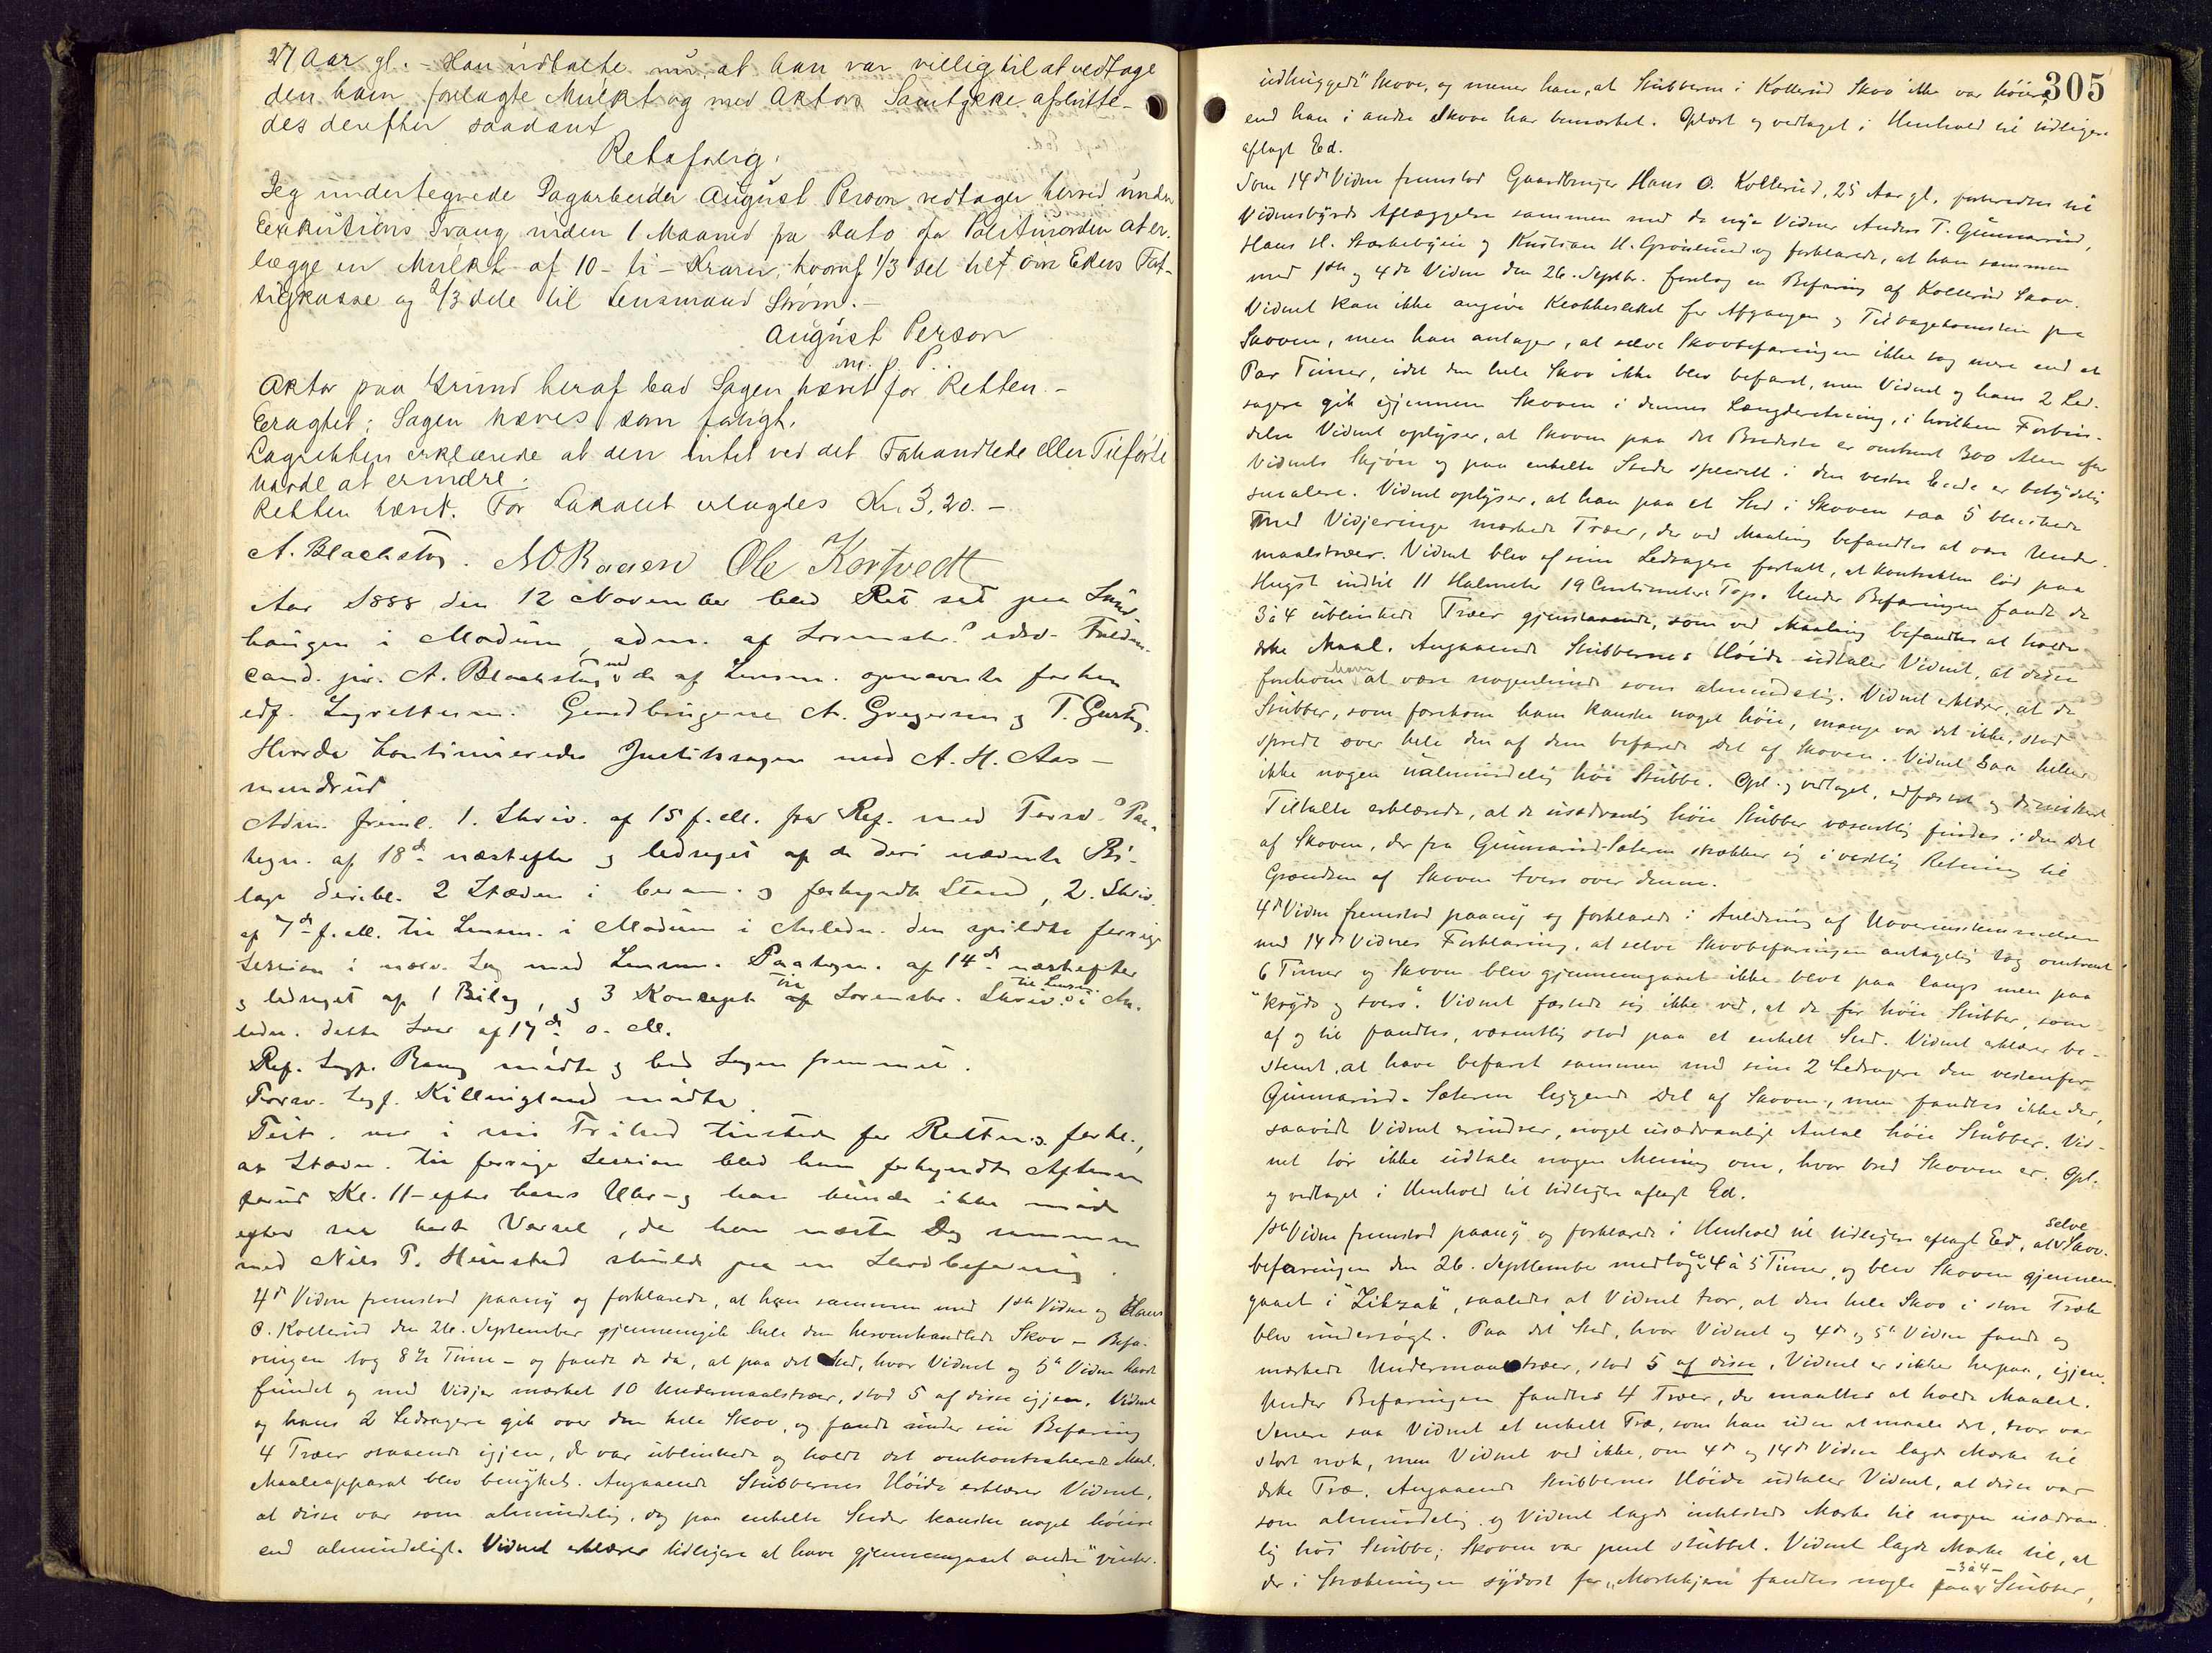 27 Aar gl. - Han udtalte nu at han var villig til at vedtage
den ham forelagte Mulkt og med Aktors Samtykke afslutte-
des derefter saadant
Retsforlig:
Jeg undertegnede Sagarbeider August Person vedtager herved under
Exekutions Tvang inden 1 Maaned fra Dato for Politiuorden at er-
lægge en Mulkt af 10 - ti - Kroner, hvoraf 1/3 del til Øvre Ekers Fat-
tigkasse og 2/3 dele til Lensmand Strøm. -
August Person
m. p. P.
Aktor paa Grund heraf bad Sagen hævet for Retten. -
Eragtet: Sagen hæves som forligt.
Lagretten erklærede at den intet ved det Forhandlede eller Tilførte
havde at erindre.
Retten hævet. For Lokalet erlagdes Kr. 3,20. -
A. Blackstad. Ole Kortvedt
Aar 1888 den 12 November blev Ret sat paa
haugen i Modum, adm. af Sorenskr. edsv. Fuldm.
cand. jur. A. Blackstad med de af Lensm. opnævnte forhen
edf. Lagrettesm. Gaardbrugerne A. Gregersen og T.
Hvorda kontinueredes Justitssagen mod A. H. Aas-
mundrud
Adm. freml. 1. Skriv. af 15 f. M. fra Ref. med Forsv. Paa-
tegn. af 18de næstefter og ledsaget af de deri nævnte Bi-
lage deribl. 2 Stævn. i beram. og forkyndt Stand, 2. Skriv.
af 7de f. M. til Lensm. i Modum i Anledn. den spildte forrige
Session i nærv. Sag med Lensm. Paategn. af 14de næstefter
og ledsaget af 1 Bilag, og 3 Koncept til Sorenskr. Skriv. til Lensm. i An-
ledn. dette Saar af 17de s. M.
Ref. Sagf. Bang mødte og bad Sagen fremmet.
Forsv. Sagf. Killingland mødte.
Tilt. var i sin Frihed tilstede for Retten og forkl.,
at Stævn. til forrige Session blev ham forkyndt Aftenen
forud Kl. 11 - efter hans Uhr - og han kunde ikke møde
efter saa kort Varsel, da han næste Dag sammen
med Nils P. Himstad skulde paa en Skovbefaring.
4de Vidne fremstod paany og forklarede, at han sammen med 1ste Vidne og Hans
O. Kollerud den 26. September gjennemgik hele den heromhandlede Skov - Befa-
ringen tog 8 1/2 Time - og fandt de da, at paa det Sted, hvor Vidnet og 5te Vidne havde
fundet og med Vidjer mærket 10 Undermaalstræer, stod 5 af disse igjen. Vidnet
og hans 2 Ledsagere gik over den hele Skov, og fandt under sin Befaring
4 Træer staaende igjen, der var ublinkede og holdt det omkontraherede Maal.
Maaleapparat blev benyttet. Angaaende Stubbernes Høide erklærer Vidnet,
at disse var som almindelig, dog paa enkelte Steder kanske noget høiere
end almindeligt. Vidnet erklærer tidligere at have gjennemgaaet andre "vinter-
305
udhuggede" Skove, og mener han, at Stubberne i Kollerud Skov ikke var høiere,
end han i andre Skove har bemærket. Oplæst og vedtaget i Henhold til tidligere
aflagt Ed.
Som 14de Vidne fremstod Gaardbruger Hans O. Kollerud, 25 Aar gl., forberedtes til
Vidnesbyrds Aflæggelse sammen med de nye Vidner Anders T. Gunnarud,
Hans H. Stærkebyeie og Kristian H. Grønlund og forklarede, at han sammen
med 1ste og 4de Vidne den 26. Septbr. foretog en Befaring af Kollerud Skov.
Vidnet kan ikke angive Klokkeslettet for Afgangen og Tilbagekomsten fra
Skoven, men han antager, at selve Skovbefaringen ikke tog mere end et
Par Timer, idet den hele Skov ikke blev befaret, men Vidnet og hans 2 Led-
sagere gik igjennem Skoven i dennes Længderetning, i hvilken Forbin-
delse Vidnet oplyser, at Skoven paa det Bredeste er omtrent 300 Alen efter
Vidnets Skjøn og paa enkelte Steder specielt i den vestre Ende er betydelig
smalere. Vidnet oplyser, at han paa et Sted i Skoven saa 5 blinkede
med Vidjeringe mærkede Træer, der ved Maaling befandtes at være Under-
maalstræer. Vidnet blev af sine Ledsagere fortalt, at Kontrakten lød paa
Hugst indtil 11 Halmeter 19 Centimeter Top. Under Befaringen fandt de
3 à 4 ublinkede Træer gjenstaaende, som ved Maaling befandtes at holde
dette Maal. Angaaende Stubbernes Høide udtaler Vidnet, at disse
forekom ham at være nogenlunde som almindelig. Vidnet erklærer, at de
Stubber, som forekom ham kanske noget høie, mange var det ikke, stod
spredt over hele den af dem befarede Del af Skoven. Vidnet saa heller
ikke nogen ualmindelig høi Stubbe. Opl. og vedtaget, edfæstet og dimitteret.
Tiltalte erklærede, at de usædvanlig høie Stubber væsentlig findes i den Del
af Skoven, der fra Gunnarud-Sæteren strækker sig i vestlig Retning til
Grændsen af Skoven tvers over denne.
4de Vidne fremstod paany og forklarede i Anledning af Uoverensstemmelsen
med 14de Vidnes Forklaring, at selve Skovbefaringen antagelig tog omtrent
6 Timer og Skoven blev gjennemgaaet ikke blot paa langs men paa
"kryds og tvers". Vidnet fæstede sig ikke ved, at de før høie Stubber, som
af og til fandtes, væsentlig stod paa et enkelt Sted. Vidnet erklærer be-
stemt, at have befaret sammen med sine 2 Ledsagere den vestenfor
Gunnarud-Sæteren liggende Del af Skoven, men fandtes ikke der,
saavidt Vidnet erindrer, noget usædvanligt Antal høie Stubber. Vid-
net tør ikke udtale nogen Mening om, hvor bred Skoven er. Opl.
og vedtaget i Henhold til tidligere aflagt Ed.
1ste Vidne fremstod paany og forklarede i Henhold til tidligere aflagt Ed, at selve Skov-
befaringen den 26. Septtember medtog ca 4 à 5 Timer, og blev Skoven gjennem-
gaaet i "Ziksak", saaledes at Vidnet tror, at den hele Skov i store Træk
blev undersøgt. Paa det Sted, hvor Vidnet og 4de og 5te Vidne fandt og
mærkede Undermaalstræer, stod 5 af disse, Vidnet er sikker herpaa, igjen.
Under Befaringen fandtes 4 Træer, der maaltes at holde Maalet.
Senere saa Vidnet et enkelt Træ, som han uden at maale det, tror var
stort nok, men Vidnet ved ikke, om 4de og 14de Vidne lagde Mærke til
dette Træ. Angaaende Stubbernes Høide udtaler Vidnet, at disse var
som almindelig og Vidnet lagde intetsteds Mærke til nogen usædvan-
lig høi Stubbe; Skoven var pent stubbet. Vidnet lagde Mærke til, at
der i Strækningen sydost for "Mortekjern" fandtes nogle -3 à 4- Stubber,